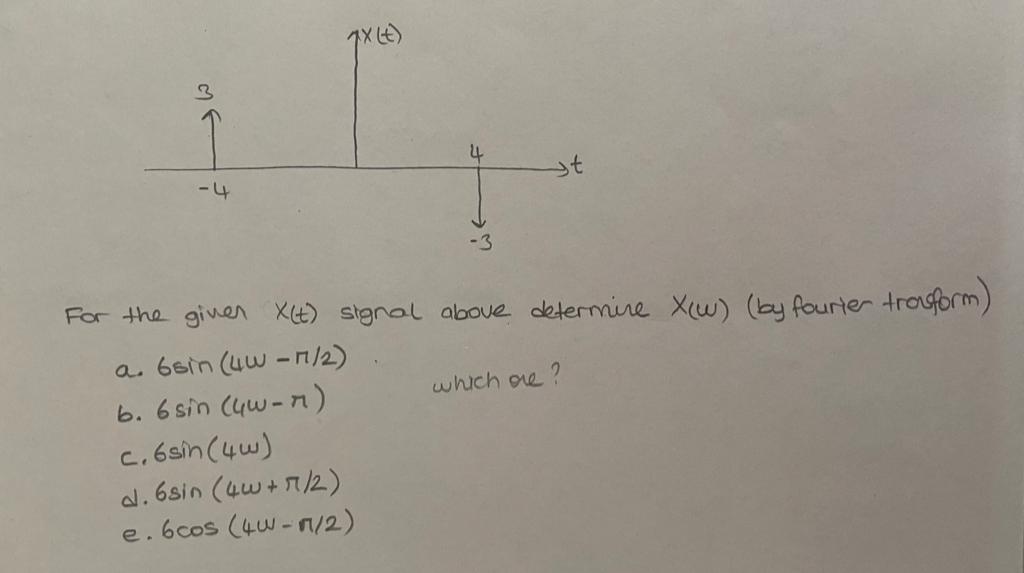 X(t)
3
4
t
-4
-3
For the given X(t) signal above determine X(w) (by fourier trasform)
a. 6sin (4w - π/2)
which one?
b. 6 sin (4w - π)
c. 6sin (4w)
d. 6sin (4w + π/2)
e. 6cos (4w - π/2)